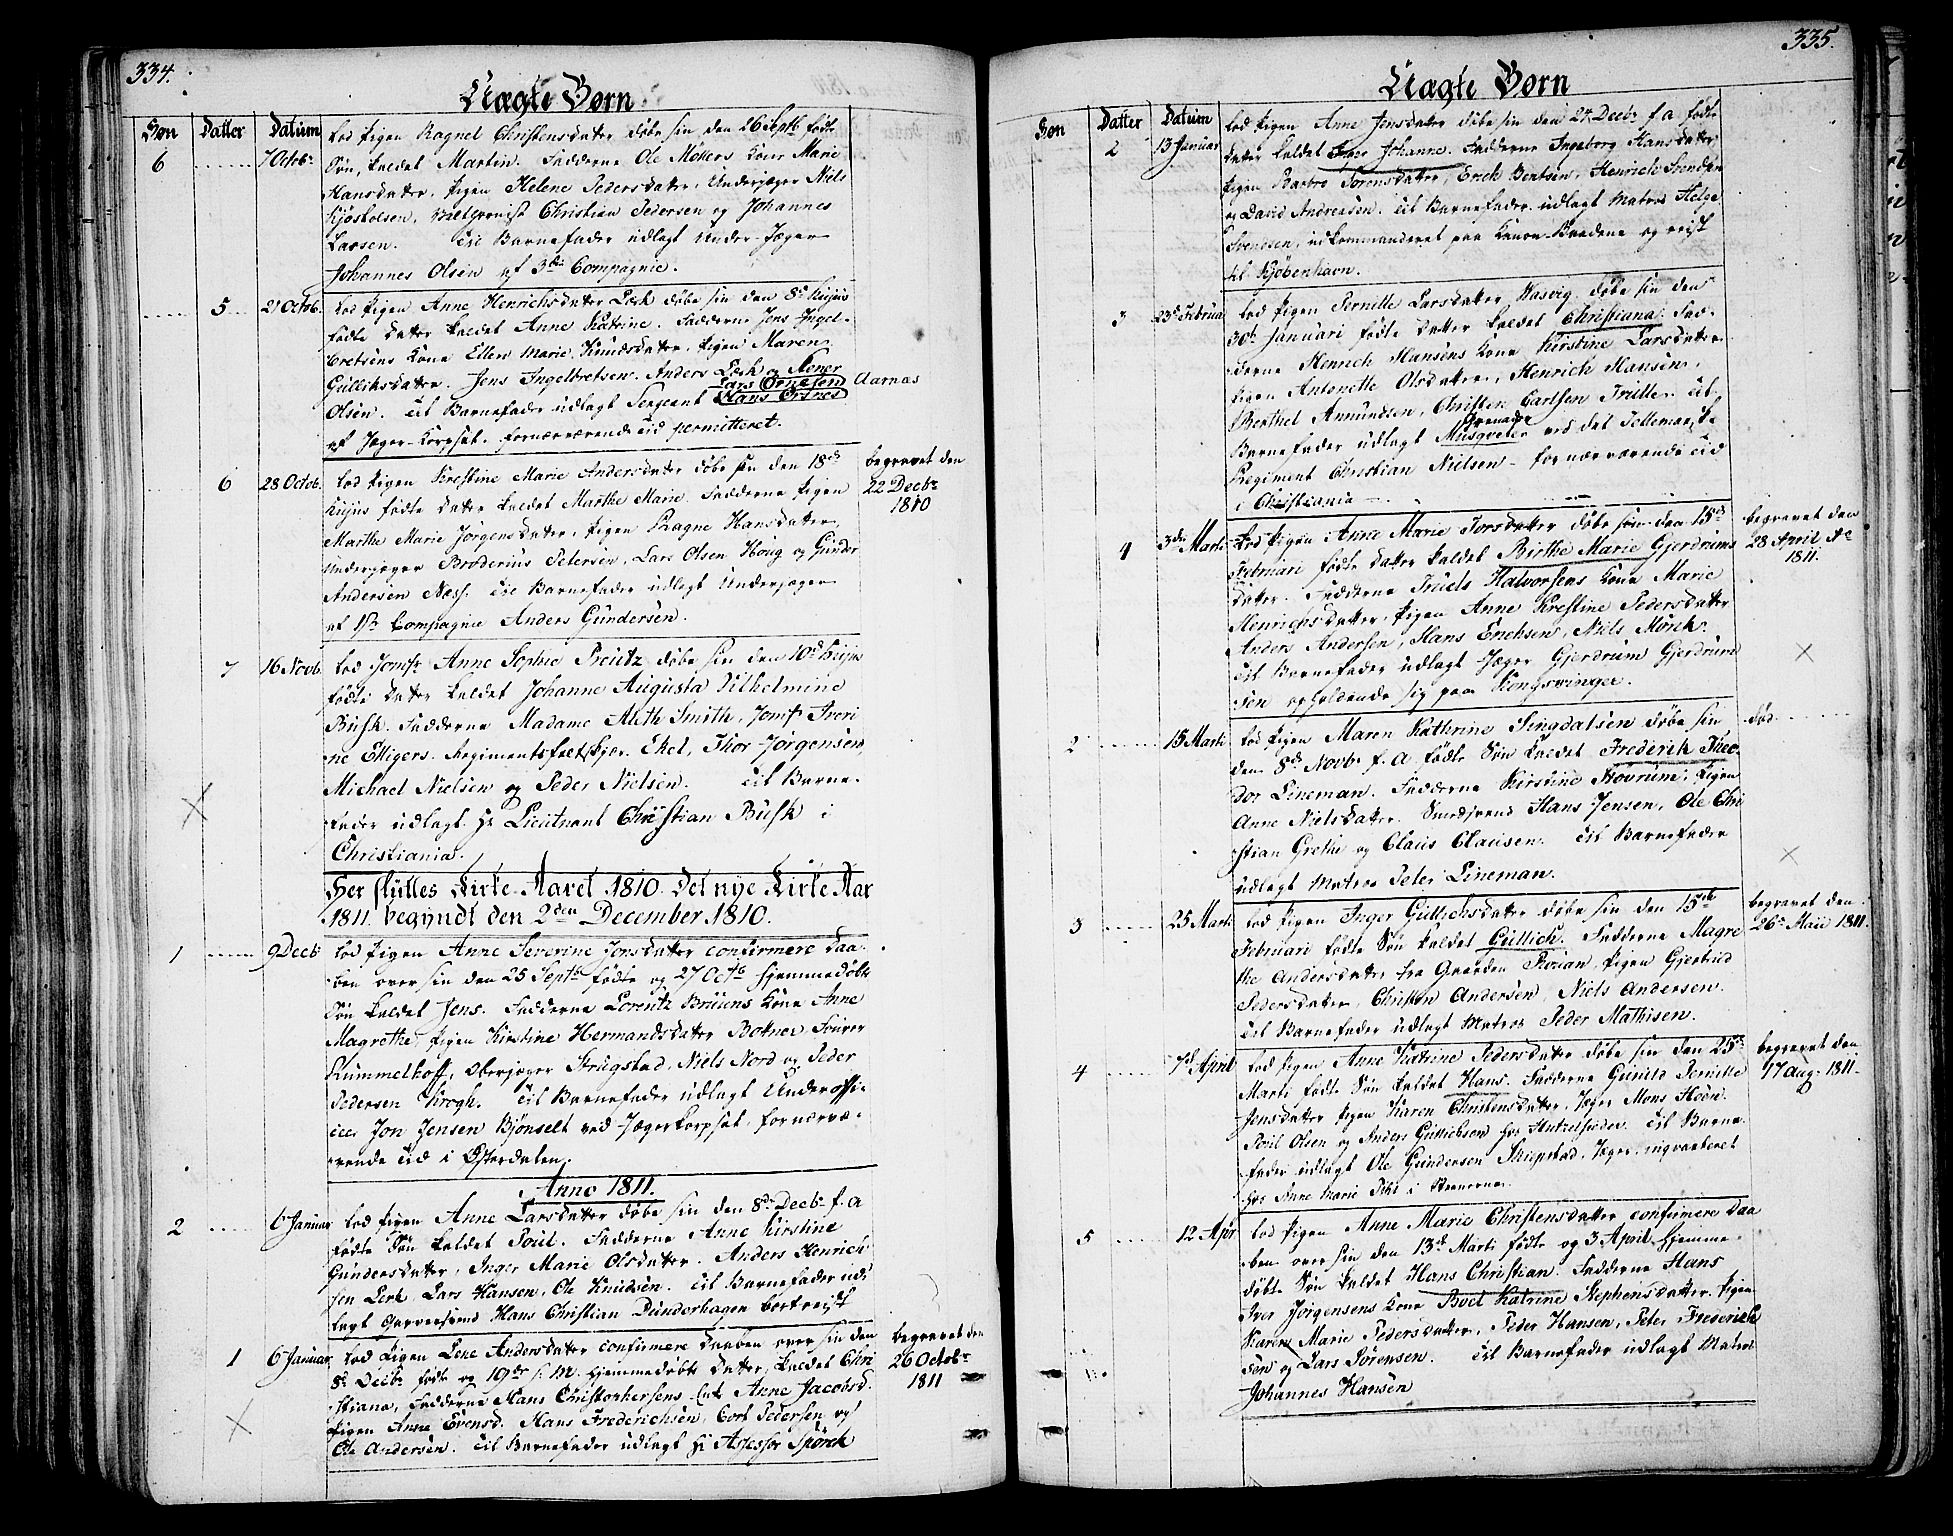 334.
Uægte Børn
Søn Datter Datum
6 ........ 7 Octobr. Lod Pigen Ragnel Christensdatter døbe sin den 26 Septb. fødte
Søn, kaldet Martin. Fadderne Ole Møllers Kone Marie
Hansdatter, Pigen Helene Pedersdatter, Underjæger Niels
Christian Pedersen og Johannes
Larsen. Til Barnefader udlagt Under-Jæger
Johannes Olsen af 3die Compagnie.
........ 5 21 Octob. Lod Pigen Anne Henrichsdatter Lærk døbe sin den 8de hujus
fødte Datter kaldet Anne Katrine. Fadderne Jens Ingel-
bretsens Kone Ellen Marie Knudsdatter, Pigen Maren
Gulliksdatter. Jens Ingelbretsen. Anders Lærk og Abner
Lars Ornesen Aarnæs
Olsen. Til Barnefader udlagt Sergeant Hans Orsnes
af Jæger-Korpset. fornærværende Tid permitteret.
6 28 Octob. Lod Pigen Krestine Marie Andersdatter døbe sin den 18de begravet den
hujus fødte Datter kaldet Marthe Marie. Fadderne Pigen 22 Decbr.
Marthe Marie Jørgensdatter, Pigen Ragne Hansdatter, 1810
Underjæger Broderius Petersen, Lars Olsen Houg og Gunder
Andersen Næss. Til Barnefader udlagt Underjæger
af 1ste Compagnie Anders Gundersen.
7 16 Novb. Lod Jomfr. Anne Sophie Preutz døbe sin den 10de hujus
fødte Datter kaldet Johanne Augusta Vilhelmine
Busk. Fadderne Madame Auth Smith, Jomfr Freri
ne Elligers. Regimentsfeltskjær Ekel, Thor Jørgensen,
Michael Nielsen og Peder Nielsen. Til Barne-
fader udlagt Hr Lieutnant Christian Busk i
Christiania.
Her sluttes Kirke-Aaret 1810. Det nye Kirke Aar
1811 begyndt den 2den December 1810.
1 ........ 9 Decb. Lod Pigen Anne Severine Jonsdatter confirmere Daa-
ben over sin den 25 Septb. fødte og 27 Octb hjemmedøbte
Søn kaldet Jens. Fadderne Lorentz Bruuns Kone Anne
Magrethe, Pigen Kirstine Hermandsdatter Botner Fourer
Kummelhoff, Oberjæger Krugstad, Niels Nord og Peder
Pedersen Krogh. Til Barnefader udlagt Underoffi-
ceer Jon Jensen Bjønselt ved Jægerkorpset, fornærvæ-
rende Tid i Østerdalen.
Anno 1811.
2 ..... 6 Januar Lod Pigen Anne Larsdatter døbe sin den 8de Decbr. f. A
fødte Søn kaldet Poul. Fadderne Anne Kirstine
Gundersdatter, Inger Marie Olsdatter. Anders Henrich
sen Lerk Lars Hansen, Ole Knudsen. Til Barnefader ud-
lagt Garversvend Hans Christian Dunderhagen bortreist
1 6 Januar Lod Pigen Lene Andersdatter confirmere Daaben over sin den begravet den
8de Decbr. født og 19de s. M. hjemmedøbte Datter, kaldet Chri 26 Octobr.
stiana, Fadderne Hans Christophersens Enk Anne Jacobsd. 1811
Pigen Anne Evensd. Hans Frederichsen, Cort Pedersen og
Ole Andersen. Til Barnefader udlagt Hr Assessor Spørck
335.
Uægte Børn
Søn Datter Datum
2 13 Januar Lod Pigen Anne Jensdatter døbe sin den 27 Decbr. f. a fødte
Datter kaldet Johanne. Fadderne Ingeborg Hansdatter
Pigen Barbro Sorensdatter, Erich Bentsen, Henrich Svendsen
og David Andreasen. Til Barnefader udlagt Matros Helge
Svensen, udkommanderet paa Kanon-Baadene og reist
til Kjøbenhavn.
3 23de Februar Lod Pigen Pernille Larsdatter Hasvig døbe sin den
30te Januari fødte Datter kaldet Christiana. Fad-
derne Henrich Hansens Kone Kirstine Larsdatter
Pigen Antonette Olsdatter, Henrich Hansen,
Berthel Amundsen, Christen Carlsen Trulle. Til
Grenader
Barnefader udlagt Musqveter ved det Tellemarkske
Regiment Christian Nielsen - fornærværende Tid
i Christiania
4 3den Marti Lod Pigen Anne Marie Torsdatter døbe sin den 15de begravet den
Februari fødte Datter kaldet Birthe Marie Gjerdrums 28 April A.
datter. Fadderne Truels Halvorsens Kone Marie 1811.
Henrichsdatter, Pigen Anne Krestine Pedersdatter
Anders Andersen, Hans Erichsen, Niels Mørch.
Til Barnefader udlagt Jæger Gjerdrum Gjerdrum
sen opholdende sig paa Kongsvinger.
2 ...... 15 Marti Lod Pigen Maren Kathrine Singdalsen døbe sin død
den 8de Novbr f. A fødte Søn kaldet Frederik Theo-
dor Lineman. Fadderne Kirstine Hovrum, Pigen
Anne Nielsdatter. Hans Jensen, Ole Chri
stian Grethe og Claus Clausen. Til Barnefader
udlagt Matros Peter Lineman.
3 ...... 25 Marti Lod Pigen Inger Gullichsdatter døbe sin den 15de begravet den
Februari fødte Søn kaldet Gullich. Fadderne Magre 26de Maii 1811.
the Andersdatter fra Gaarden Rorian, Pigen Gjertrud
Pedersdatter, Christen Andersen, Niels Andersen.
Til Barnefader udlagt Matros Peder Mathisen.
4 ...... 7de April Lod Pigen Anne Katrine Pedersdatter døbe sin den 25de begravet den
Marti fødte Søn kaldet Hans. Fadderne Gunild Pernille 17 Aug. 1811.
Jensdatter Pigen Karen Christensdatter, Jæger Mons Hoen
Poul Olsen og Anders Gulliksen Til Barne-
fader udlagt Ole Gundersen Skiepstad, Jæger, inqvarteret
hos Anne Marie Pihl i
5 ...... 12 Apr Lod Pigen Anne Marie Christensdatter confirmere Daa
ben over sin den 13de Marti fødte og 3 April hjemme-
døbte Søn kaldet Hans Christian. Fadderne Hans
Iver Jørgensens Kone Boel Katrine Stephensdatter. Pigen
Karen Marie Pedersdatter, Peder Hansen, Peter Frederich
sen og Lars Sørensen. Til Barnefader udlagt Matros
Johannes Hansen